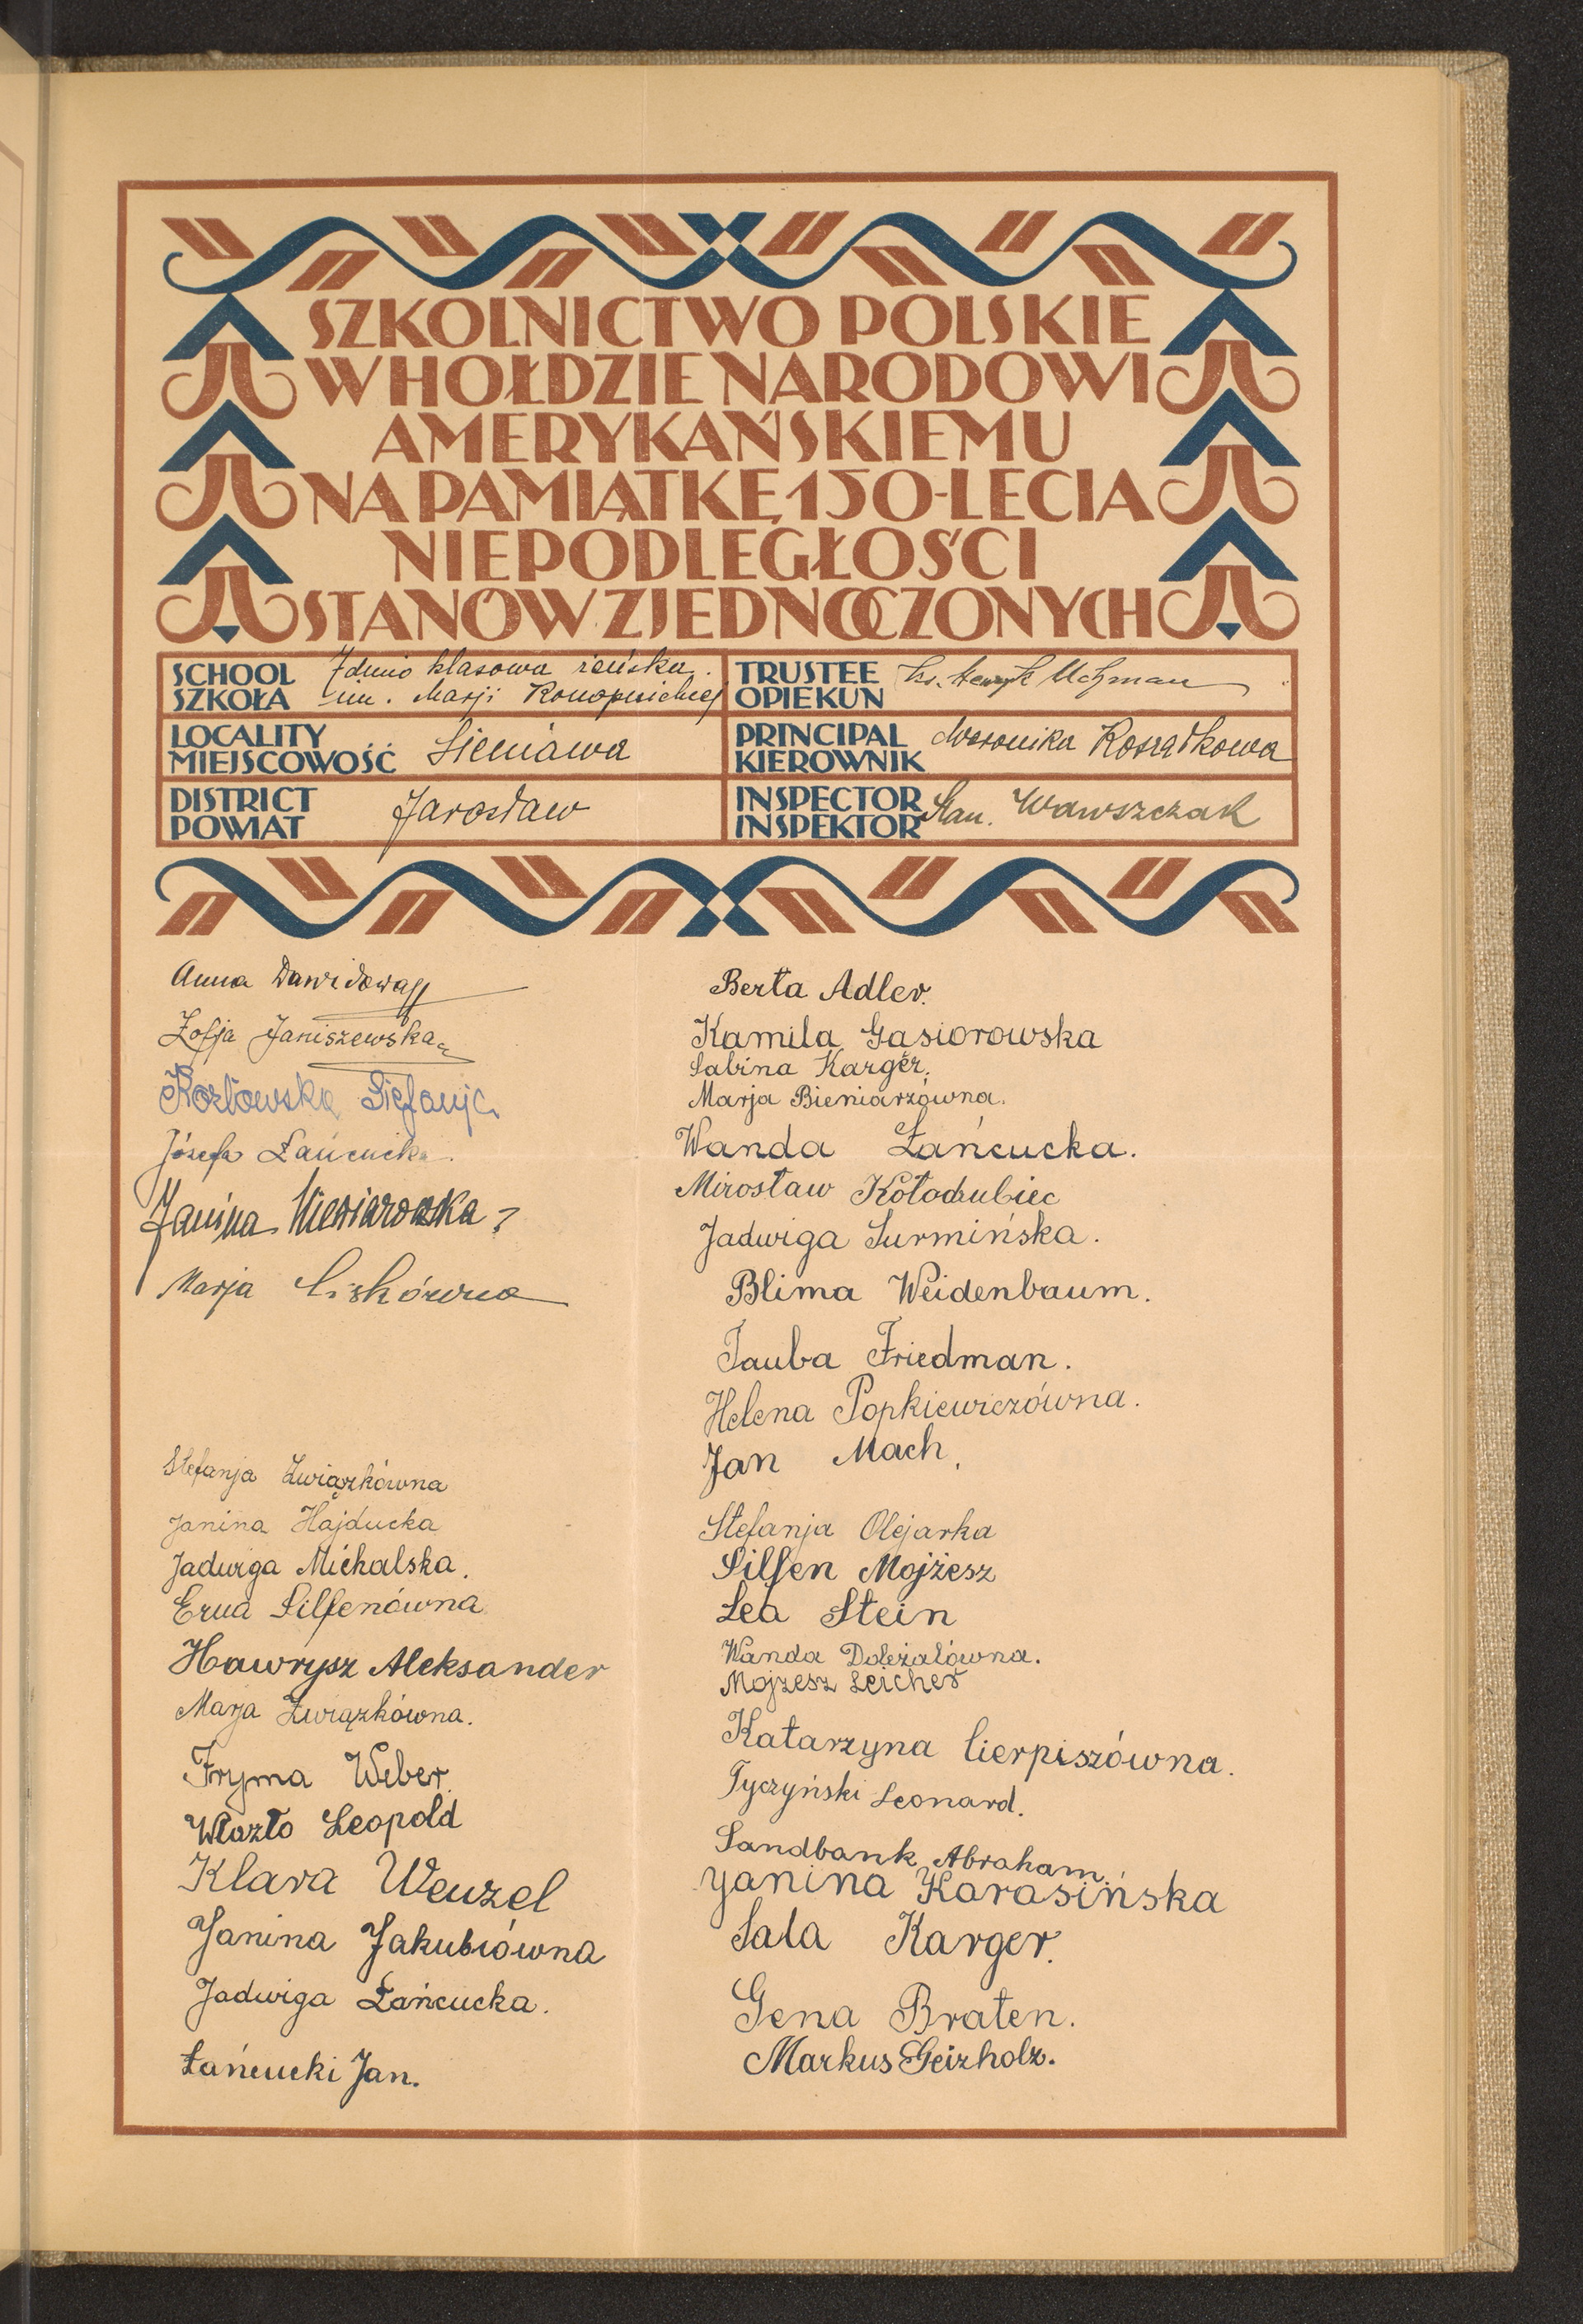 SZKOLNICTWO POLSKIE
W HOŁDZIE NARODOWI
AMERYKAŃSKIEMU
NA PAMIĄTKĘ 150-LECIA
NIEPODLEGŁOŚCI
STANÓW ZJEDNOCZONYCH
SCHOOL
SZKOŁA
7dmio klasowa żeńska
im. Marji Konopnickiej
TRUSTEE
OPIEKUN
Ks. Henryk Uchman
LOCALITY
MIEJSCOWOŚĆ
Sieniawa
PRINCIPAL
KIEROWNIK
Weronika Kosiatkowa
DISTRICT
POWIAT
Jarosław
INSPECTOR
INSPEKTOR
Stan. Wawszczak
Anna
Zofja Janiszewska
Kozłowska Stefanja
Józefa Łańcucka.
Janina
Marja Liskówna
Stefanja Związkówna
Janina Hajducka
Jadwiga Michalska.
Erna Silfenówna
Hawrysz Aleksander
Marja Związkówna.
Fryma Weber.
Wlazło Leopold
Klara Wenzel
Janina Jakubiówna
Jadwiga Łańcucka.
Łańcucki Jan.
Berta Adler.
Kamila Gąsiorowska
Sabina Karger.
Marja Bieniarzówna.
Wanda Łańcucka.
Mirosław Kołodrubiec
Jadwiga Surmińska.
Blima Weidenbaum.
Tauba Friedman.
Helena Popkiewiczówna.
Jan Mach.
Stefanja Olejarka
Silfen Mojżesz
Lea Stein
Wanda Doleżalówna.
Mojzesz Leicher
Katarzyna Cierpiszówna.
Tyczyński Leonard.
Sandbank Abraham.
Janina Karasińska
Sala Karger.
Gena Braten.
Markus Geizholz.